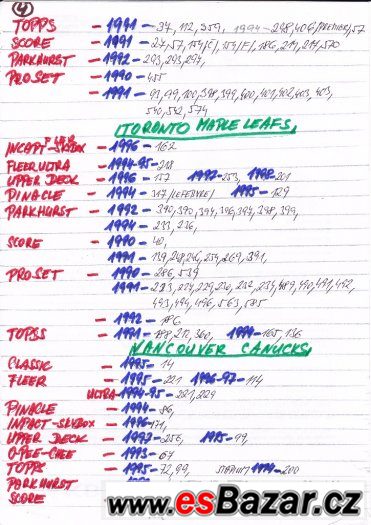 4
TOPPS - 1991 - 37, 112, 359, 1994 - 298, 406/PREMIER/57
SCORE - 1991 - 27, 57, 154/C/, 154/F/, 186, 211, 214, 570
PARKHURST - 1992 - 293, 293, 294,
PROSET - 1990 - 455
- 1991 - 91, 99, 100, 398, 399, 400, 401, 402, 403, 403,
540, 542, 574
TORONTO MAPLE LEAFS,
SKYBOX - 1996 - 162
FLEER ULTRA - 1994-95 - 218
UPPER DECK - 1996 - 157 1997 - 253, 1998 - 201
PINACLE - 1994 - 317/LEFEBVRE/ 1995 - 129
PARKHURST - 1992 - 390, 390, 394, 396, 397, 398, 399,
1994 - 233, 236,
SCORE - 1990 - 40,
- 1991 - 139, 248, 246, 254, 269, 391,
PROSET - 1990 - 286, 539
1991 - 223, 227, 229, 230, 232, 234, 489, 490, 491, 492,
493, 494, 496, 563, 585
- 1992 - 186
TOPSS - 1991 - 188, 212, 360, 1994 - 165, 136
VANCOUVER CANUCKS,
CLASSIC - 1995 - 14
FLEER - 1995 - 221 1996-97 - 114
ULTRA - 1994-95 - 221, 229
PINACLE - 1994 - 86,
INPACT - SKYBOX - 1996 - 171,
UPPER DECK - 1997 - 256, 1995 - 99,
O-PEE-CHEE - 1993 - 67
TOPPS - 1995 - 72, 99, 1994 - 200
PARKHURST
SCORE
www.esBazar.cz